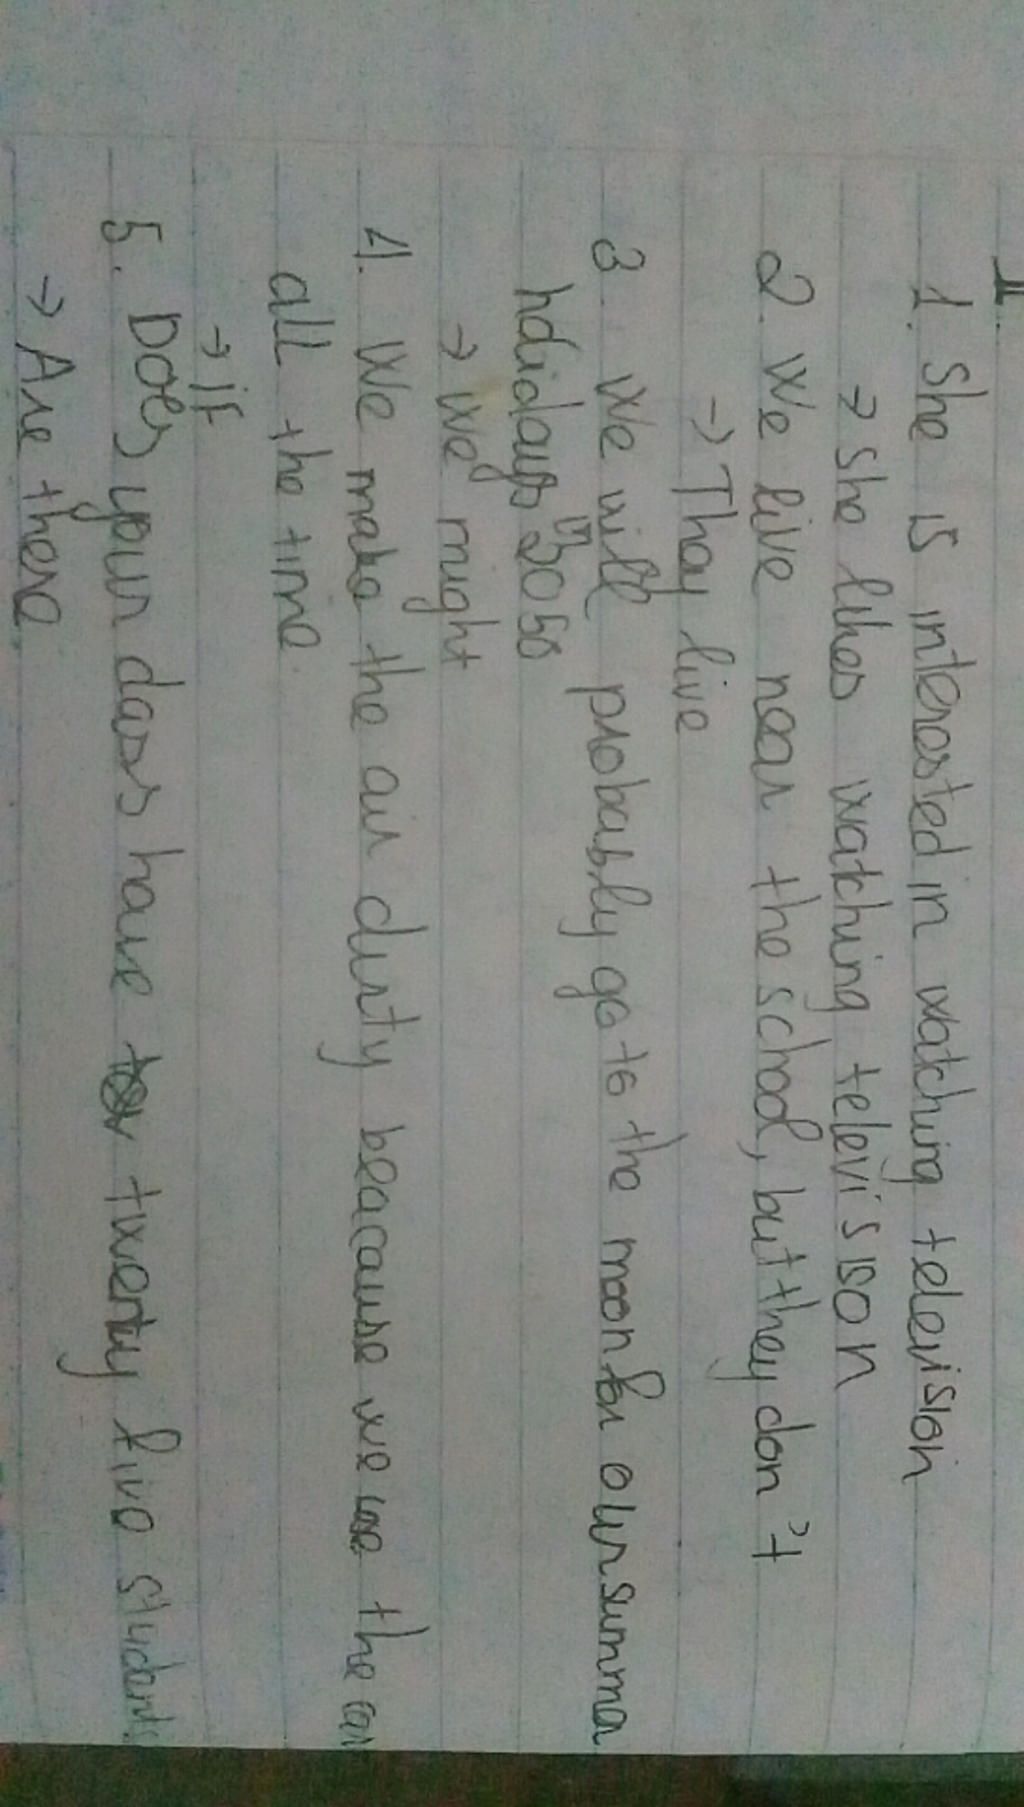 II.
1. She is interested in watching television
→ she likes watching televisison
2. We live near the school, but they don't
→ They live
3. We will probably go to the moon for our summer
holidays in 2050
→ We might
4. We make the air durty beacause we use the car
all the time.
→ if
5. Does your class have twenty five students
→ Are there